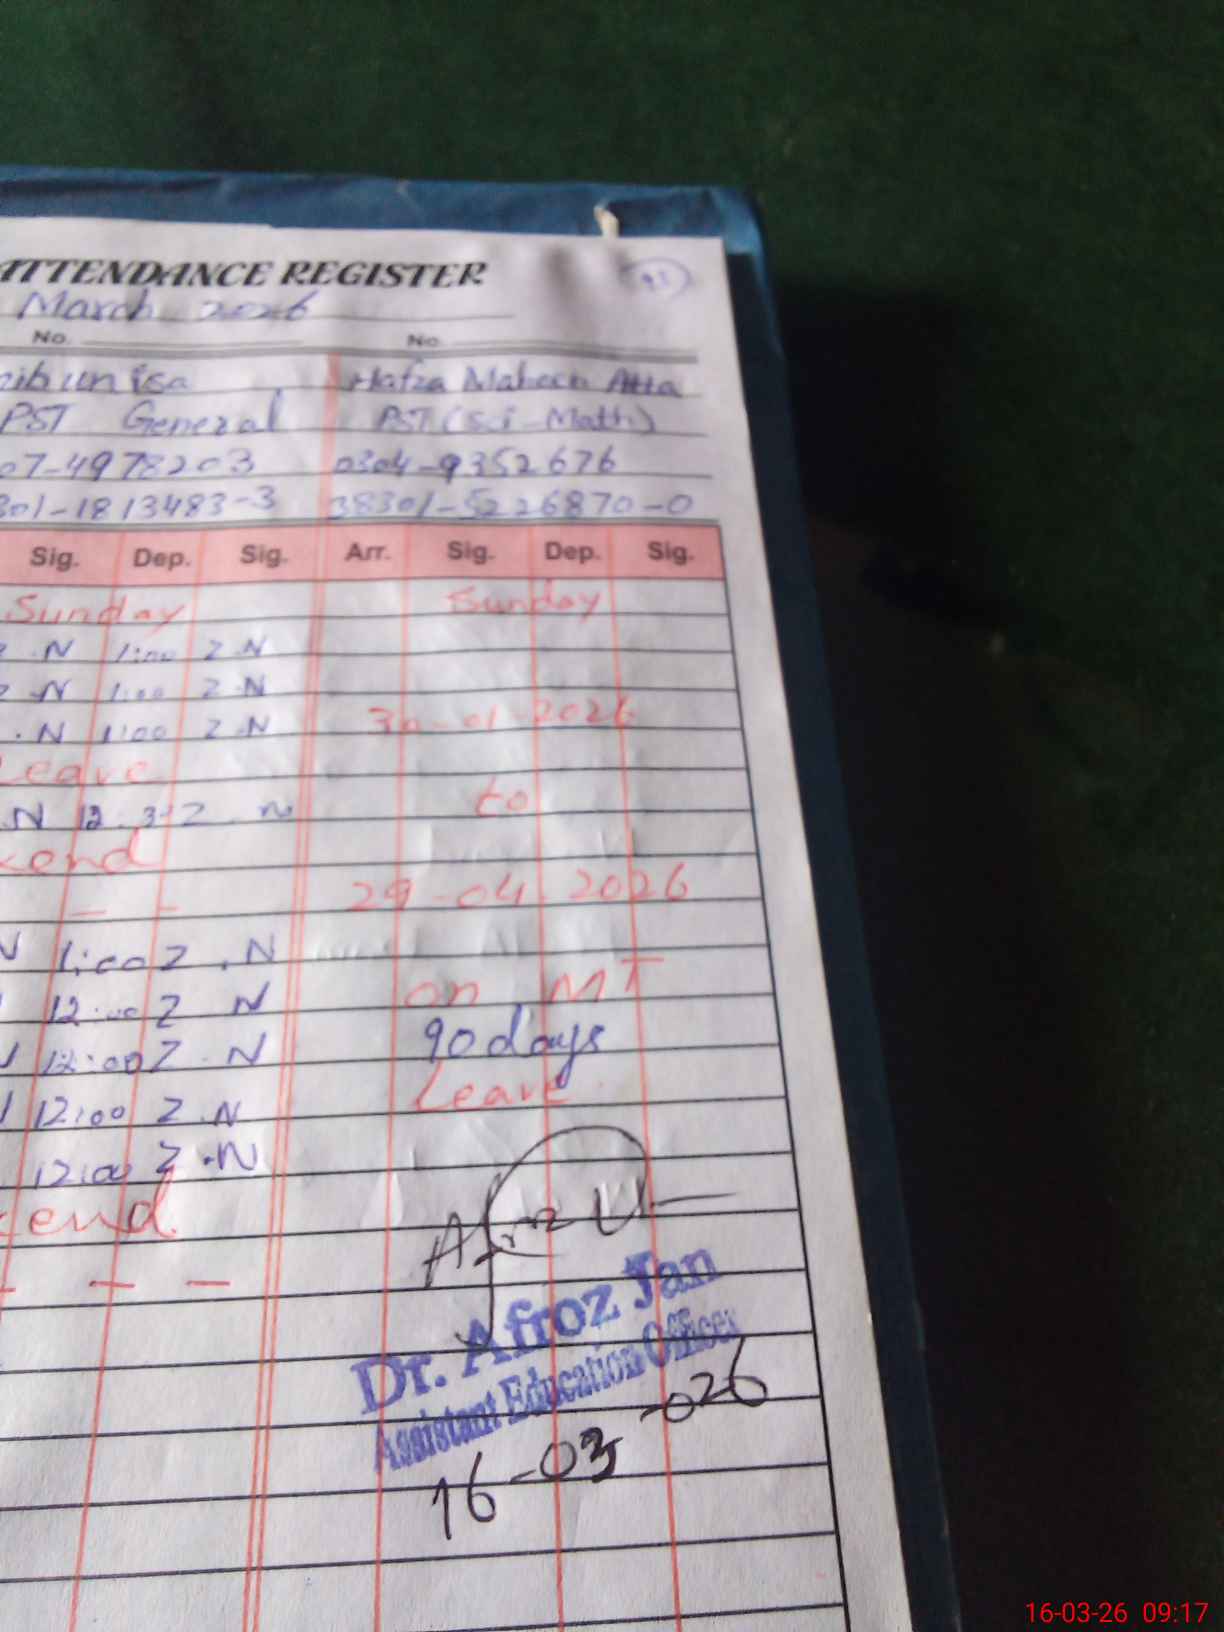 ATTENDANCE REGISTER
March 2026
No. No.
nib un isa Hafza Maheen Atta
PST General PST (Sci-Math)
07-4978203 0304-9352676
301-1813483-3 38301-5226870-0
Sig. Dep. Sig. Arr. Sig. Dep. Sig.
Sunday Sunday
.N 1:00 Z.N
.N 1:00 Z.N
.N 1:00 Z.N 30-01-2026
Leave
N 12:3 Z.N to
kend
- - 29-04-2026
N 1:00 Z.N
12:00 Z N on MT
12:00 Z.N 90 days
12:00 Z.N Leave
12:00 Z.N
kend
- - -
Dr. Afroz Jan
Assistant Education Officer
16-03-026
16-03-26 09:17